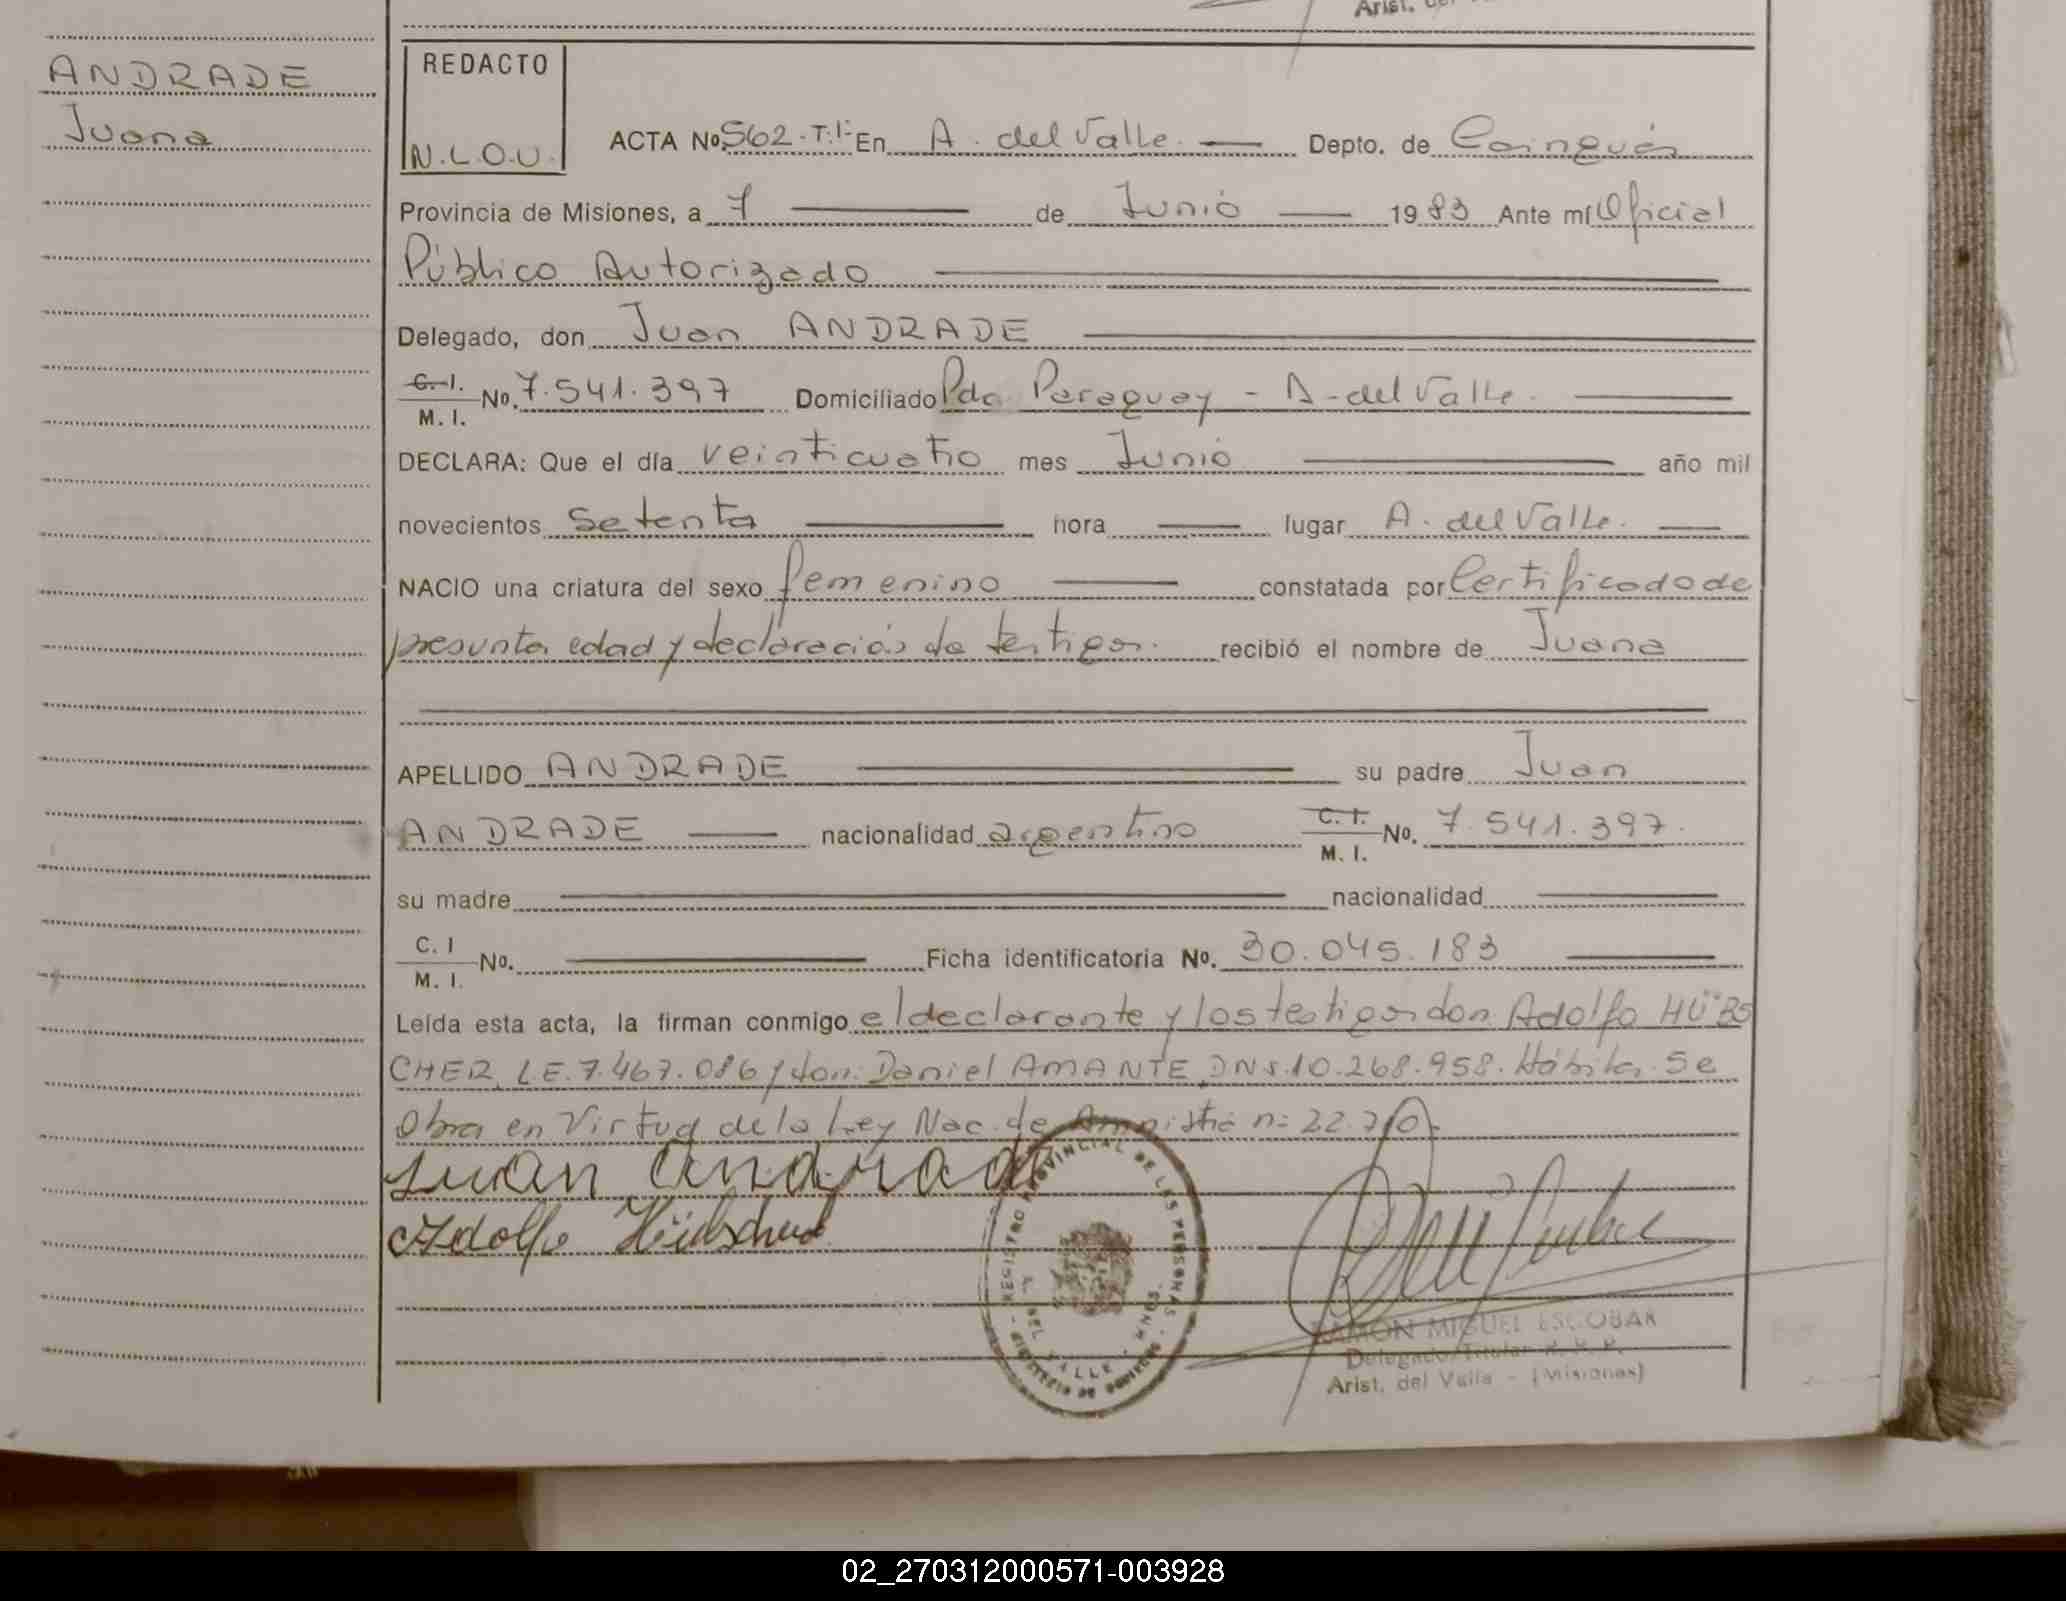 Arist. del
ANDRADE
Juana
REDACTO
N.L.O.U.
ACTA Nº 562-T.1º En A. del Valle. Depto. de Cainguás
Provincia de Misiones, a 7 de Junio 1983 Ante mí Oficial
Público Autorizado
Delegado, don Juan ANDRADE
C. I. M. I. Nº. 7.541.397 Domiciliado Pdo Paraguay - A. del Valle.
DECLARA: Que el día veinticuatro mes Junio año mil
novecientos Setenta hora lugar A. del Valle.
NACIO una criatura del sexo femenino constatada por Certificado de
presunta edad y declaración de testigos. recibió el nombre de Juana
APELLIDO ANDRADE su padre Juan
ANDRADE nacionalidad argentino C. I. M. I. Nº. 7.541.397.
su madre nacionalidad
C. I M. I. Nº. Ficha identificatoria Nº. 30.045.183
Leída esta acta, la firman conmigo el declarante y los testigos don Adolfo HÜBS
CHER L.E. 7.467.086 y don Daniel AMANTE DNI 10.268.958. Hábiles. Se
Obra en Virtud de la Ley Nac. de Amnistía nº 22.770.
Juan Andrade
Adolfo Hübscher
REGISTRO PROVINCIAL DE LAS PERSONAS
A. DEL VALLE - MNES.
MINISTERIO DE GOBIERNO
RAMON MIGUEL ESCOBAR
Delegado Titular R. P. P.
Arist. del Valle - (Misiones)
02_270312000571-003928